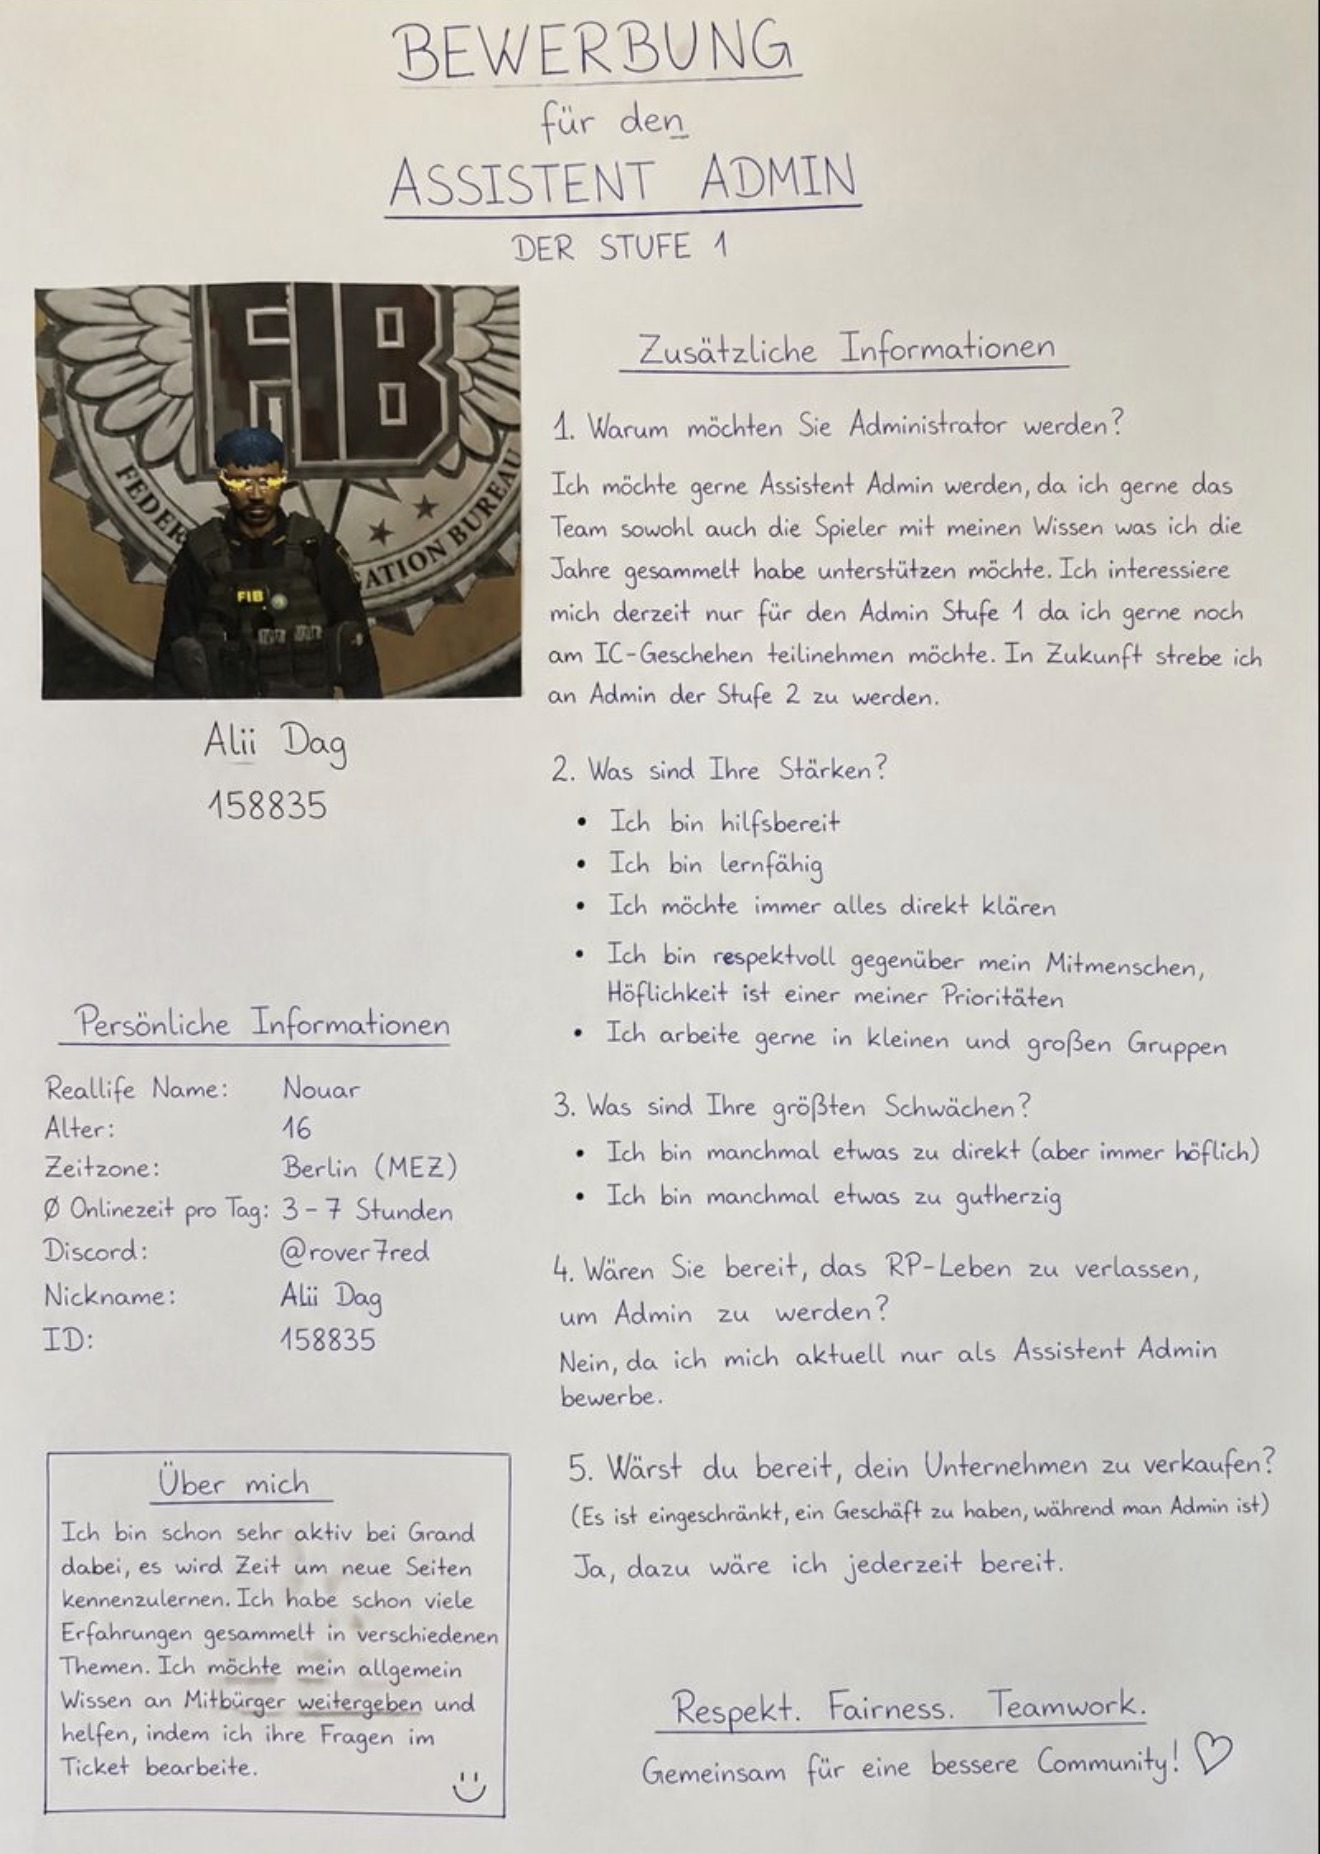 BEWERBUNG
für den
ASSISTENT ADMIN
DER STUFE 1
FIB
FEDER
ATION BUREAU
FIB
Alii Dag
158835
Persönliche Informationen
Reallife Name: Nouar
Alter: 16
Zeitzone: Berlin (MEZ)
Ø Onlinezeit pro Tag: 3-7 Stunden
Discord: @rover7red
Nickname: Alii Dag
ID: 158835
Über mich
Ich bin schon sehr aktiv bei Grand
dabei, es wird Zeit um neue Seiten
kennenzulernen. Ich habe schon viele
Erfahrungen gesammelt in verschiedenen
Themen. Ich möchte mein allgemein
Wissen an Mitbürger weitergeben und
helfen, indem ich ihre Fragen im
Ticket bearbeite.
Zusätzliche Informationen
1. Warum möchten Sie Administrator werden?
Ich möchte gerne Assistent Admin werden, da ich gerne das
Team sowohl auch die Spieler mit meinen Wissen was ich die
Jahre gesammelt habe unterstützen möchte. Ich interessiere
mich derzeit nur für den Admin Stufe 1 da ich gerne noch
am IC-Geschehen teilinehmen möchte. In Zukunft strebe ich
an Admin der Stufe 2 zu werden.
2. Was sind Ihre Stärken?
• Ich bin hilfsbereit
• Ich bin lernfähig
• Ich möchte immer alles direkt klären
• Ich bin respektvoll gegenüber mein Mitmenschen,
Höflichkeit ist einer meiner Prioritäten
• Ich arbeite gerne in kleinen und großen Gruppen
3. Was sind Ihre größten Schwächen?
• Ich bin manchmal etwas zu direkt (aber immer höflich)
• Ich bin manchmal etwas zu gutherzig
4. Wären Sie bereit, das RP-Leben zu verlassen,
um Admin zu werden?
Nein, da ich mich aktuell nur als Assistent Admin
bewerbe.
5. Wärst du bereit, dein Unternehmen zu verkaufen?
(Es ist eingeschränkt, ein Geschäft zu haben, während man Admin ist)
Ja, dazu wäre ich jederzeit bereit.
Respekt. Fairness. Teamwork.
Gemeinsam für eine bessere Community!